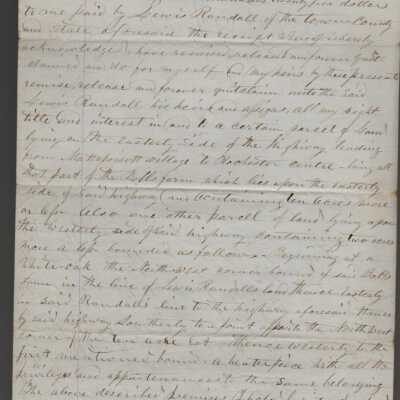 twenty five dollar
to me paid by Lewis Randall of the town County
and State aforesaid the receipt whereof is hereby
acknowledge have remised released and forever quit
claimed and do for myself and my heirs by these presents
remise, release and forever quitclaim unto the said
Lewis Randall his heirs and assigns, all my right
title and interest in and to a certain parcel of land
lying on the Easterly side of the highway leading
from Mattapoisett village to Rochester centre being all
that part of the farm which lies upon the easterly
side of said highway and containing ten acres more
or less also one other parcel of land lying upon
the westerly side of said highway containing two acres
more or less bounded as follows Beginning at a
White oak the Northwest corner bound of said
farm in the line of Lewis Randalls land thence easterly
in said Randalls line to the highway aforesaid thence
by said highway Southerly to a point opposite the North west
corner of the ten acre lot thence westerly to the
first mentioned bound together with all the
privileges and appurtenances to the same belonging
The above described premises